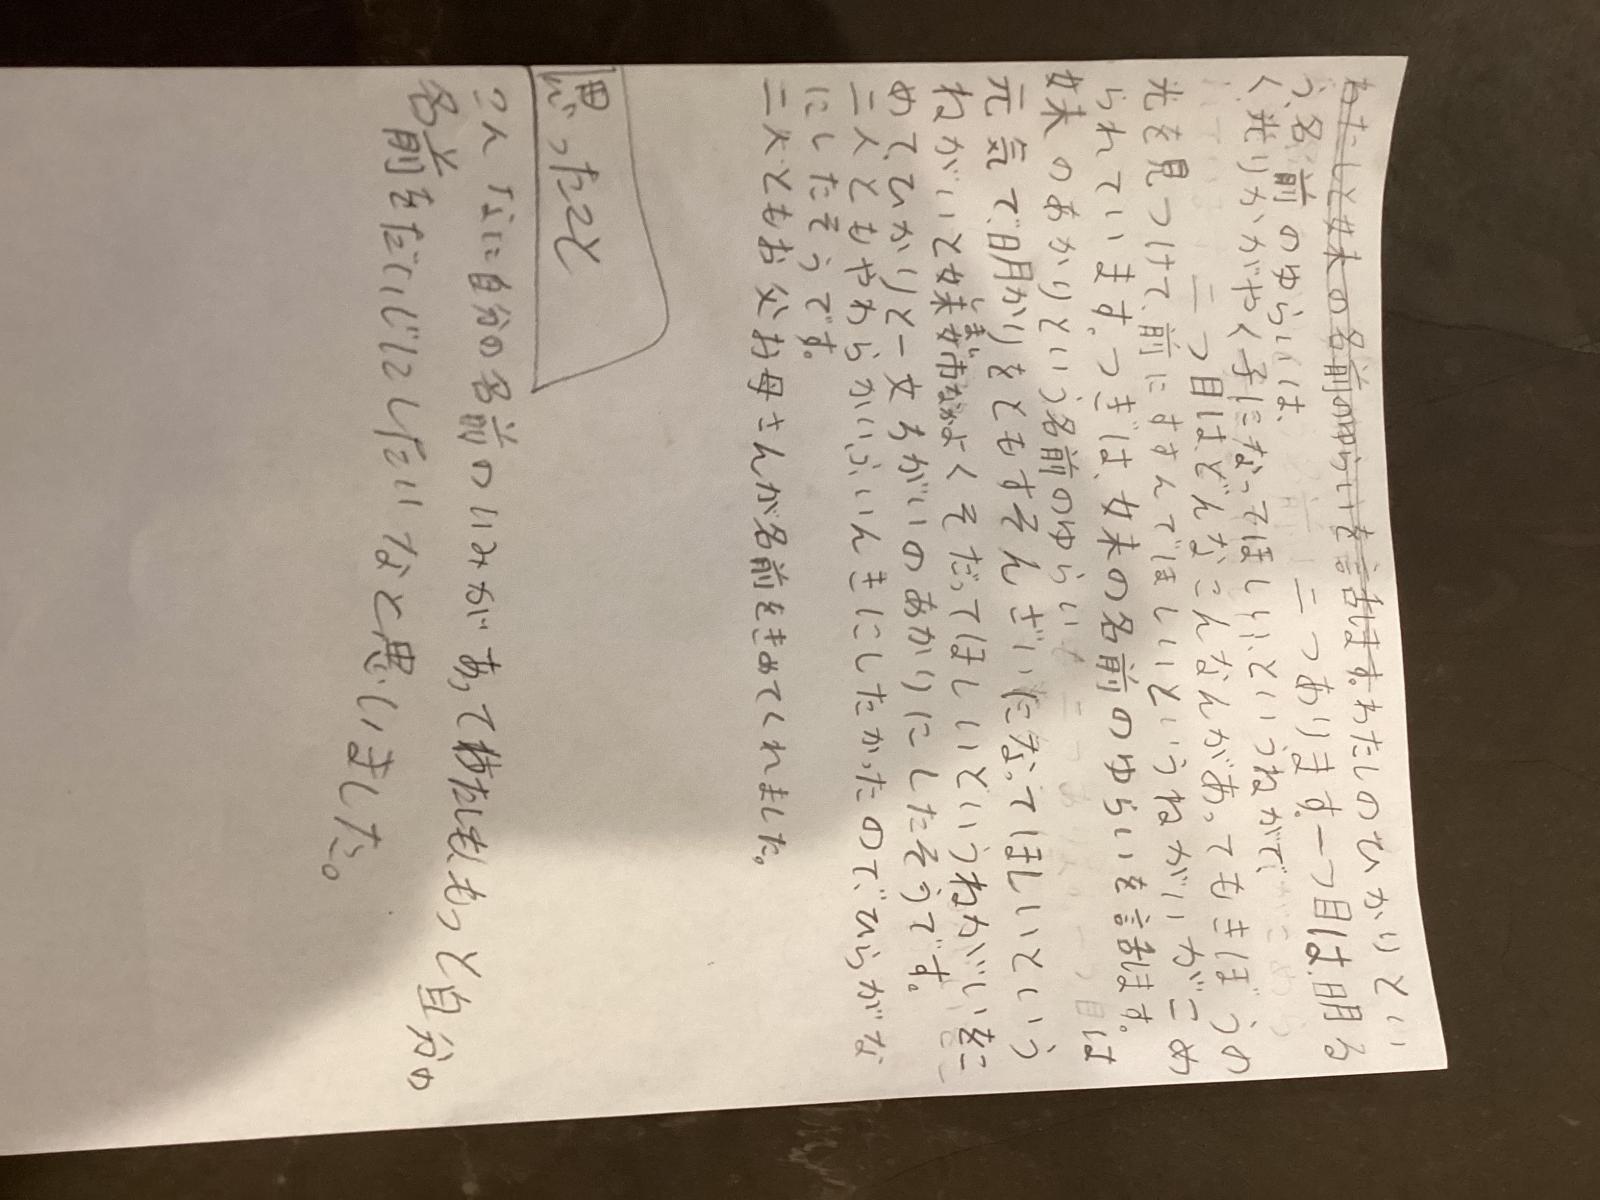 わたしと妹の名前のゆらいを話します。わたしのひかりとい
う、名前のゆらいは、二つあります。一つ目は、明る
く、光りかがやく子になってほしい、というねがで、
二つ目は、どんなこんなんがあってもきぼうの
光を見つけて、前にすすんでほしいというねがいがこめ
られています。つぎは、妹の名前のゆらいを話します。
妹のあかりという名前のゆらいは
元気で、明かりをともすそんざいになってほしいという
ねがいと姉妹なかよくそだってほしいというねがいをこ
めて、ひかりと一文ちがいのあかりにしたそうです。
二人ともやわらかいふいんきにしたかったので、ひらがな
にしたそうです。
二人ともお父お母さんが名前をきめてくれました。
思ったこと
こんなに自分の名前のいみがあってわたしも、もっと自分の
名前をだいじにしたいなと思いました。